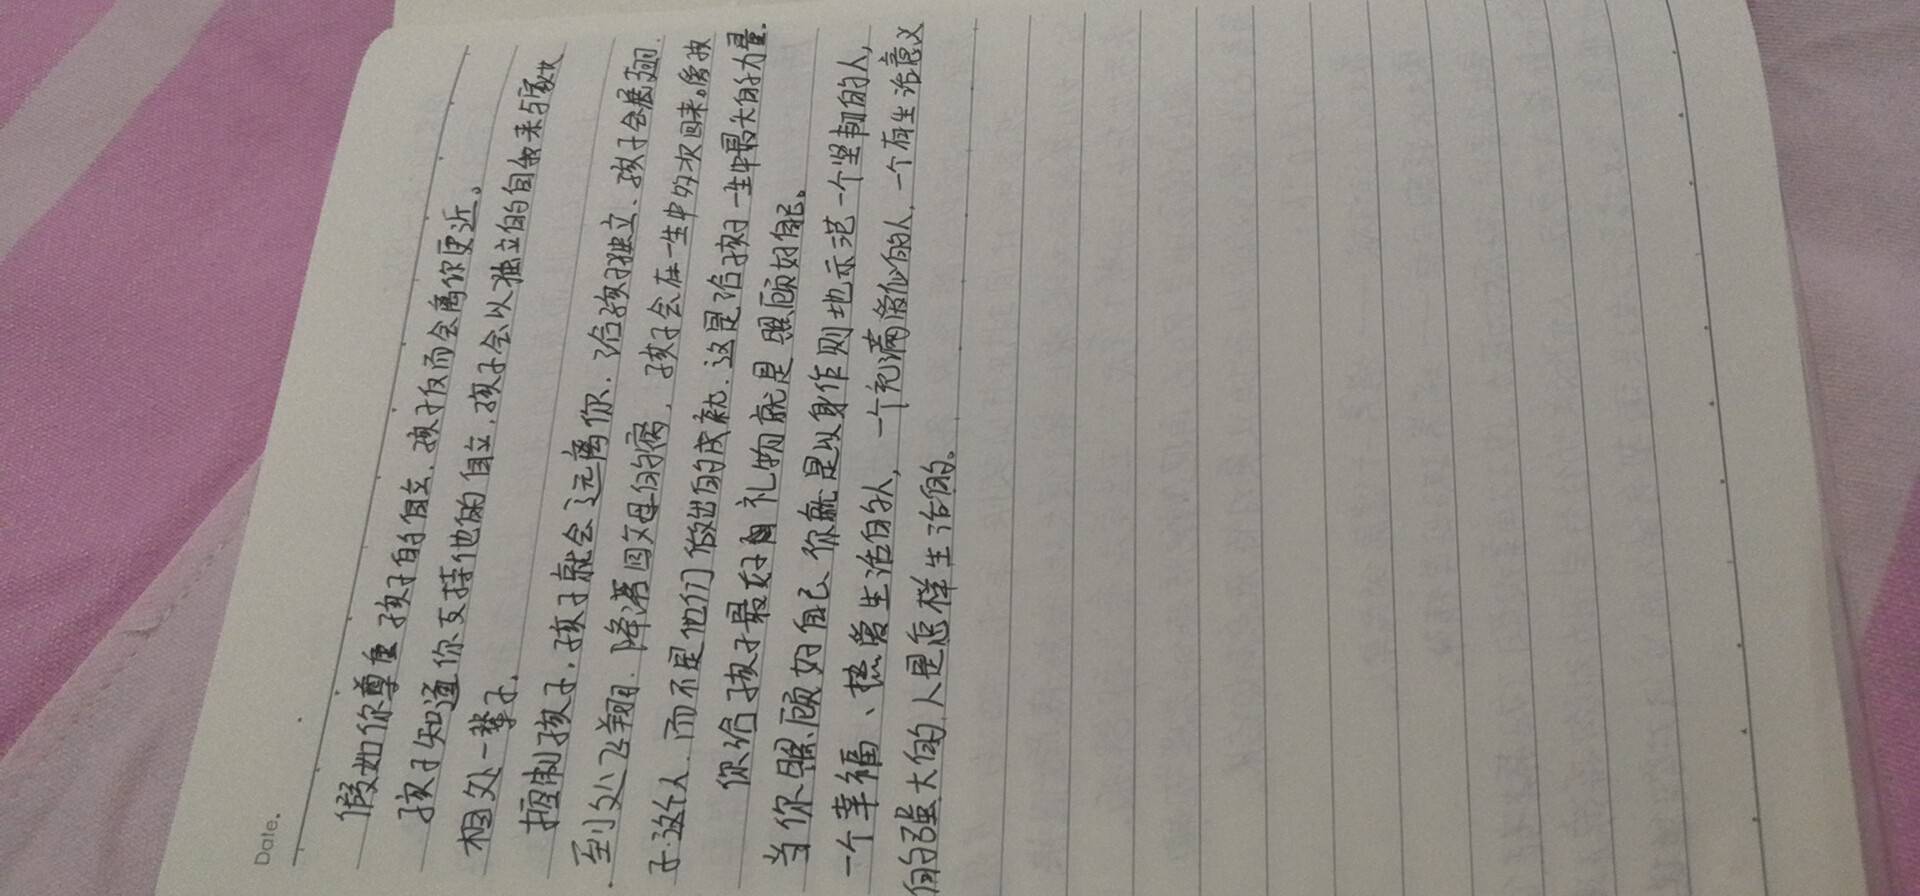 Date.
假如你尊重孩子的自立,孩子反而会离你更近。
孩子知道你支持他的自立,孩子会以独立的自我来与家人
相处一辈子,
控制孩子,孩子就会远离你.给孩子独立、孩子会展翅
到处飞翔.降落回父母的窝,孩子会在一生中多次回来。爱孩
子这个人,而不是他们做出的成就.这是给孩子一生中最大的力量.
你给孩子最好的礼物就是照顾好自己。
当你照顾好自己你就是以身作则地示范一个坚韧的人,
一个幸福、热爱生活的人,一个充满爱心的人,一个有生活意义
的强大的人是怎样生活的。